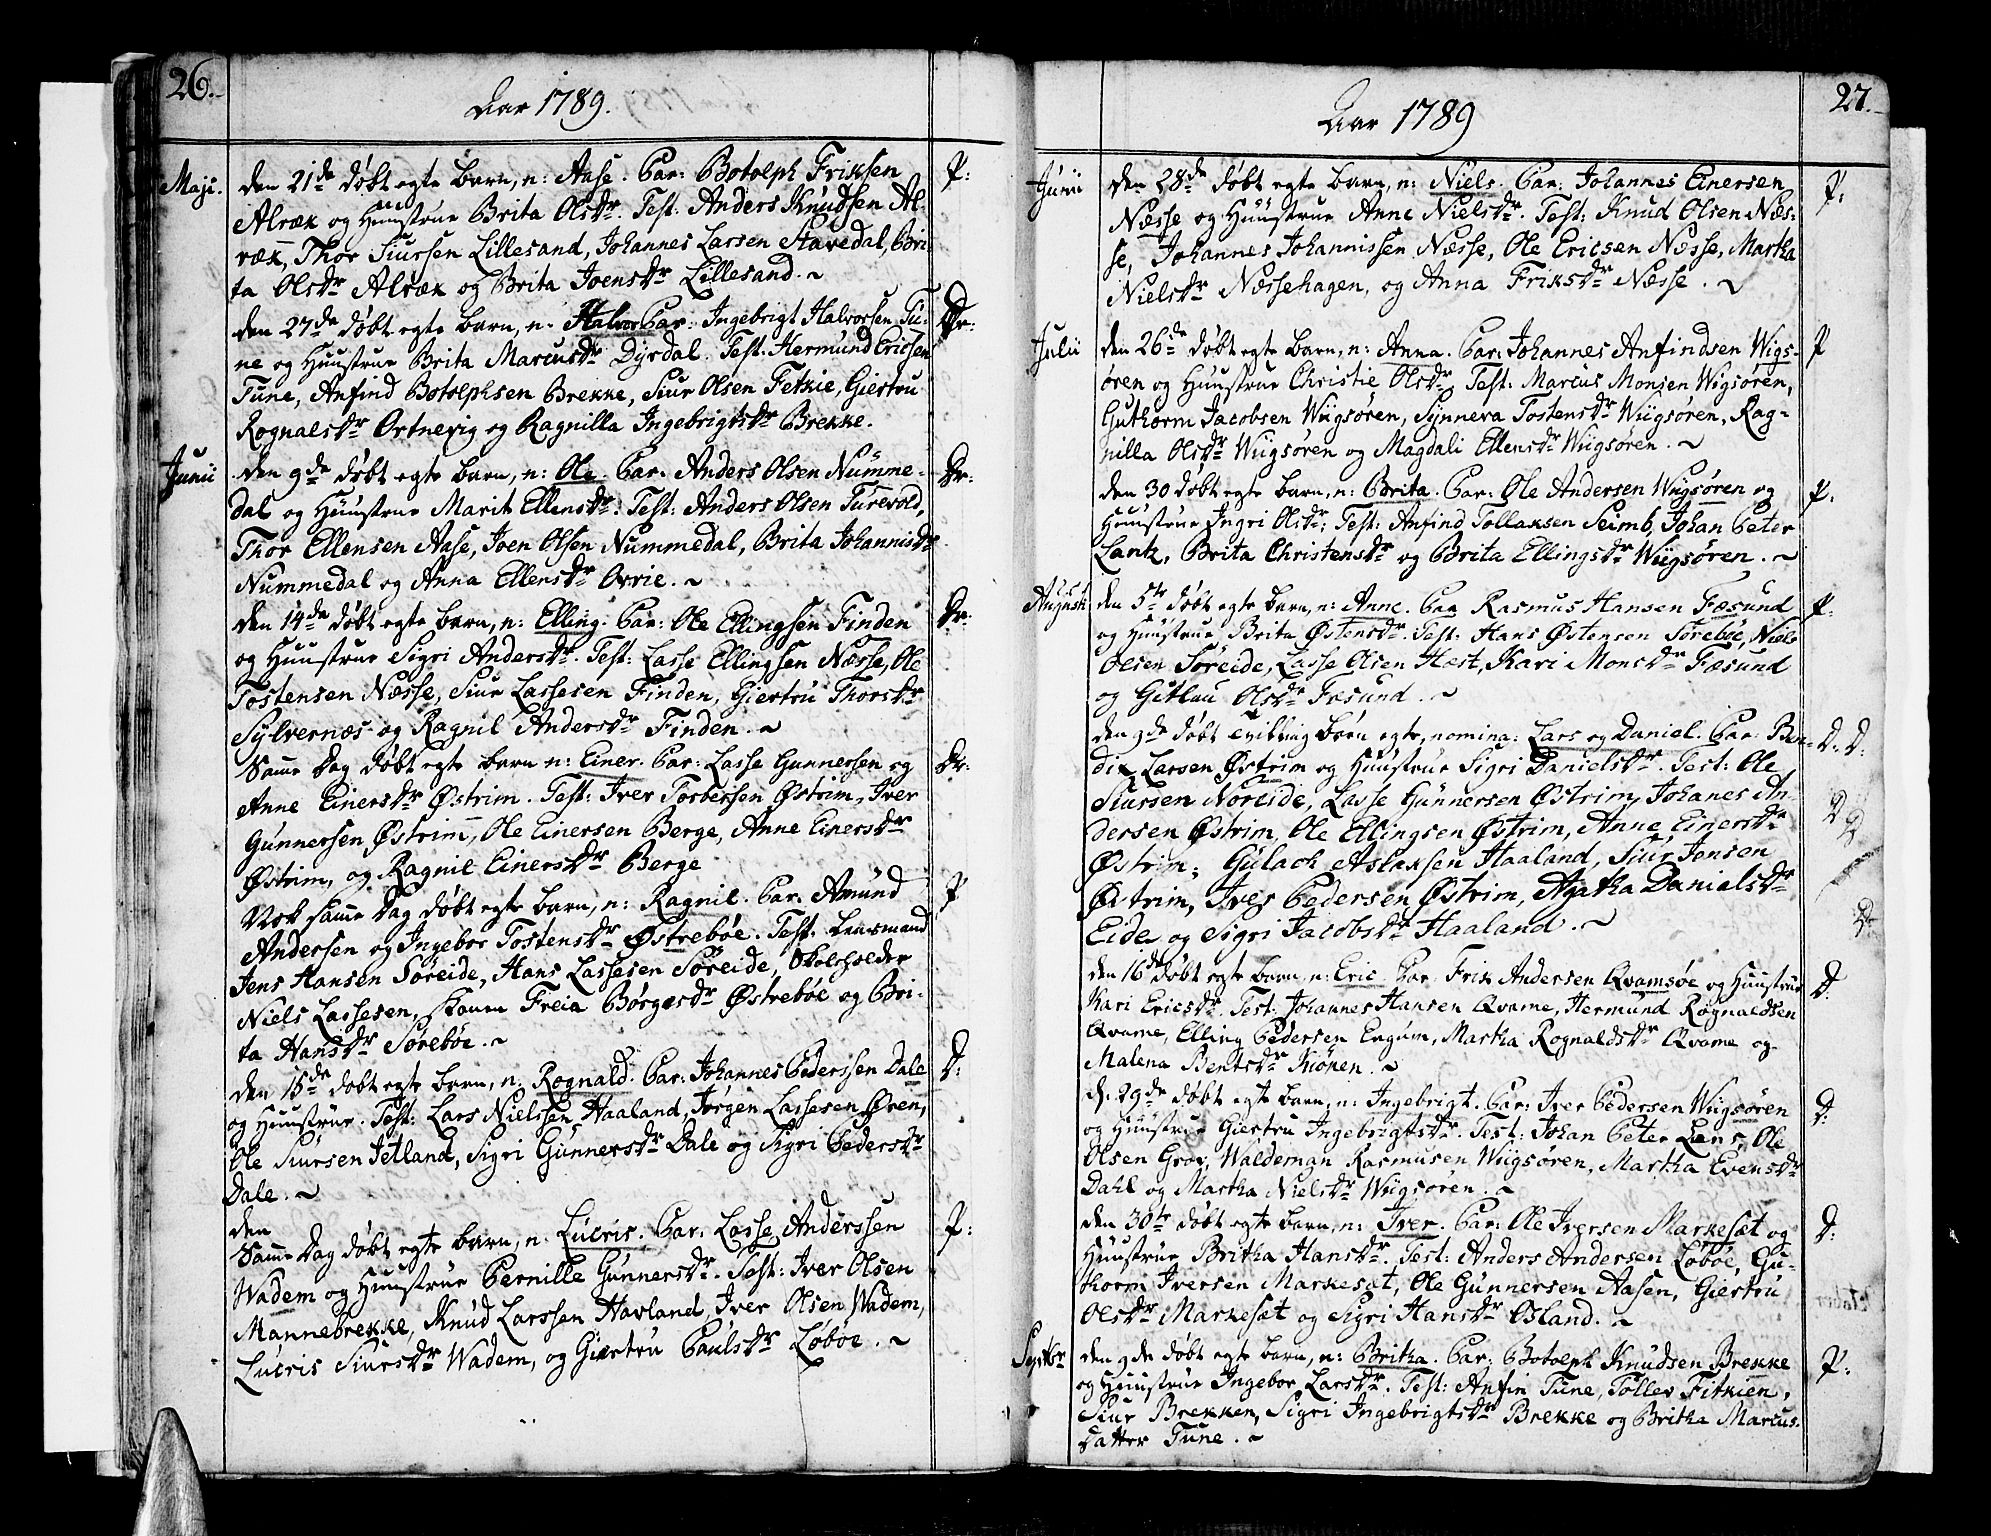 26.
Aar 1789.
Maji.
den 21de døbt egte barn, n: Aase. Par: Botolph Friksen P:
Alræk og Huustrue Brita Olsdr. Test: Anders Knudsen Al-
ræk, Thor Siursen Lillesand, Johannes Larsen Stavedal, Bri-
ta Olsdr Alræk og Brita Joensdr Lillesand. ~
den 27de døbt egte barn, n: Halvor Par: Ingebrigt Halvorsen Tu- Dr:
ne og Huustrue Brita Marcusdr Dyrdal. Test: Hermund Ericsen
Tune, Anfind Botolphsen Brekke, Siur Olsen Fetkie, Giertru
Rognalsdr Ortnevig og Ragnilla Ingebrigtsdr Brekke.
Junii
den 9de døbt egte barn, n: Ole. Par: Anders Olsen Numme- Dr:
dal og Huustrue Marit Ellensdr. Test: Anders Olsen Turevold,
Thor Ellensen Aase, Joen Olsen Nummedal, Brita Johannisdr
Nummedal og Anna Ellensdr Orrie. ~
den 14de døbt egte barn, n: Elling. Par: Ole Ellingsen Finden Dr:
og Huustrue Sigri Andersdr. Test: Lasse Ellingsen Næsse, Ole
Tostensen Næsse, Siur Lassesen Finden, Giertru Thorsdr
Sylvernæs og Ragnil Andersdr Finden. ~
Samme Dag døbt egte barn n: Einer. Par: Lasse Gunnersen og Dr:
Anne Einersdr Østrim. Test: Iver Torbersen Østrim, Iver
Gunnersen Østrim, Ole Einersen Berge, Anne Einersdr
Østrim, og Ragnil Einersdr Berge
Nok samme Dag døbt egte barn, n: Ragnil. Par: Amund P
Andersen og Ingebor Tostensdr Østrebøe. Test: Lensmand
Jens Hansen Søreide, Hans Lassesen Søreide, Skoleholder
Niels Lassesen, Freia Børgesdr Østrebøe og Bri-
ta Hansdr Sørebøe. ~
den 15de døbt egte barn, n: Rognald. Par: Johannes Pederssen Dale D:
og Huustrue. Test: Lars Nielssen Haaland, Jørgen Lassesen Øren,
Ole Siursen Jetland, Sigri Gunnersdr Dale og Sigri Pedersdr
Dale. ~
den
Samme Dag døbt egte barn, n: Lucris. Par: Lasse Anderssen P:
Wadem og Huustrue Pernille Gunnersdr. Test: Iver Olsen
Mannebrekke, Knud Larssen Havland, Iver Olsen Wadem,
Lucris Siursdr Wadem, og Giertru Paulsdr Løbøe. ~
27.
Aar 1789
Junii
den 28de døbt egte barn, n: Niels. Par: Johannes Einersen P:
Næsse og Huustrue Anne Nielsdr. Test: Knud Olsen Næs-
se, Johannes Johannissen Næsse, Ole Ericsen Næsse, Martha
Nielsdr Næssehagen, og Anna Friksdr Næsse. ~
Julii
den 26de døbt egte barn, n: Anna. Par: Johannes Anfindsen Wigs- P
øren og Huustrue Christie Olsdr. Test: Marcus Monsen Wigsøren,
Guthorm Jacobsen Wiigsøren, Synneva Tostensdr Wiigsøren, Rag-
nilla Olsdr Wiigsøren og Magdali Ellensdr Wiigsøren. ~
den 30 døbt egte barn, n: Brita. Par: Ole Andersen Wiigsøren og P:
Huustrue Ingri Olsdr; Test: Anfind Tollaksen Seimb, Johan Peter
Lantz, Brita Christensdr og Brita Ellingsdr Wiigsøren. ~
Augusti
den 5te døbt egte barn, n: Anne. Par Rasmus Hansen Fæsund P:
og Huustrue Brita Østensdr. Test: Hans Østensen Sørebøe, Niels
Olsen Søreide, Lasse Olsen Hæst, Kari Monsdr Fæsund
og Gitlau Olsdr Fæsund. ~
den 9de døbt Tvilling børn egte, nomina: Lars og Daniel. Par: Ben- D: D:
dix Larsen Østrim og Huustrue Sigri Danielsdr. Test: Ole
Siursen Noreide, Lasse Gunnersen Østrim, Johanes An- D
dersen Østrim, Ole Ellingsen Østrim, Anne Einersdr D
Østrim; Gulach Aslaksen Haaland, Siur Jensen
Østrim, Iver Pedersen Østrim, Agatha Danielsdr
Eide og Sigri Jacobsdr Haaland. ~
den 16de døbt egte barn, n: Eric. Par Frik Andersen Qvamsøe og Huustrue D:
Kari Ericsdr. Test: Johannes Hansen Qvame, Hermund Rognaldsen
Qvame, Elling Pedersen Engum, Martha Rognaldsdr Qvame og
Malena Bentsdr Kiøren. ~
d. 29de døbt egte barn, n: Ingebrigt. Par: Iver Pedersen Wiigsøren D:
og Huustrue Giertru Ingebrigtsdr. Test: Johan Peter Lens, Ole
Olsen Grov, Waldeman Rasmusen Wiigsøren, Martha Evensdr
Dahl og Martha Nielsdr Wiigsøren. ~
den 30te døbt egte barn, n: Iver. Par: Ole Iversen Markesæt og D:
Huustrue Britha Hansdr. Test: Anders Andersen Løbøe, Gu-
thorm Iversen Markesæt, Ole Gunnersen Aasen, Giertru
Olsdr Markesæt og Sigri Hansdr Øsland. ~
Septbr
den 9de døbt egte barn, n: Britha. Par: Botolph Knudsen Brekke P:
og Huustrue Ingebor Larsdr. Test: Anfin Tune, Tollev Fitkien,
Siur Brekken, Sigri Ingebrigtsdr Brekke og Britha Marcus-
datter Tune. ~